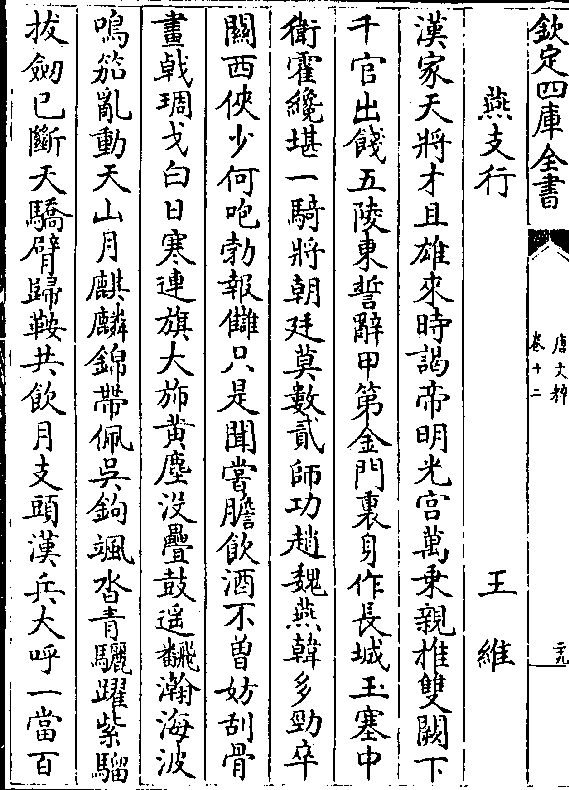 欽定四庫全書
唐文粹
卷十二
燕支行
王維
漢家天將才且雄來時謁帝明光宫萬乗親推雙闕下
千官出餞五陵東誓辭甲第金門裏身作長城玉塞中
衛霍纔堪一騎將朝廷莫數貳師功趙魏燕韓多勁卒
關西俠少何咆勃報讎只是聞嘗膽飲酒不曽妨刮骨
畫㦸琱戈白日寒連旗大斾黄塵没疊鼓遥飜瀚海波
鳴笳亂動天山月麒麟錦帶佩吳鉤颯沓青驪躍紫騮
拔劒已斷天驕臂歸鞍共飲月支頭漢兵大呼一當百